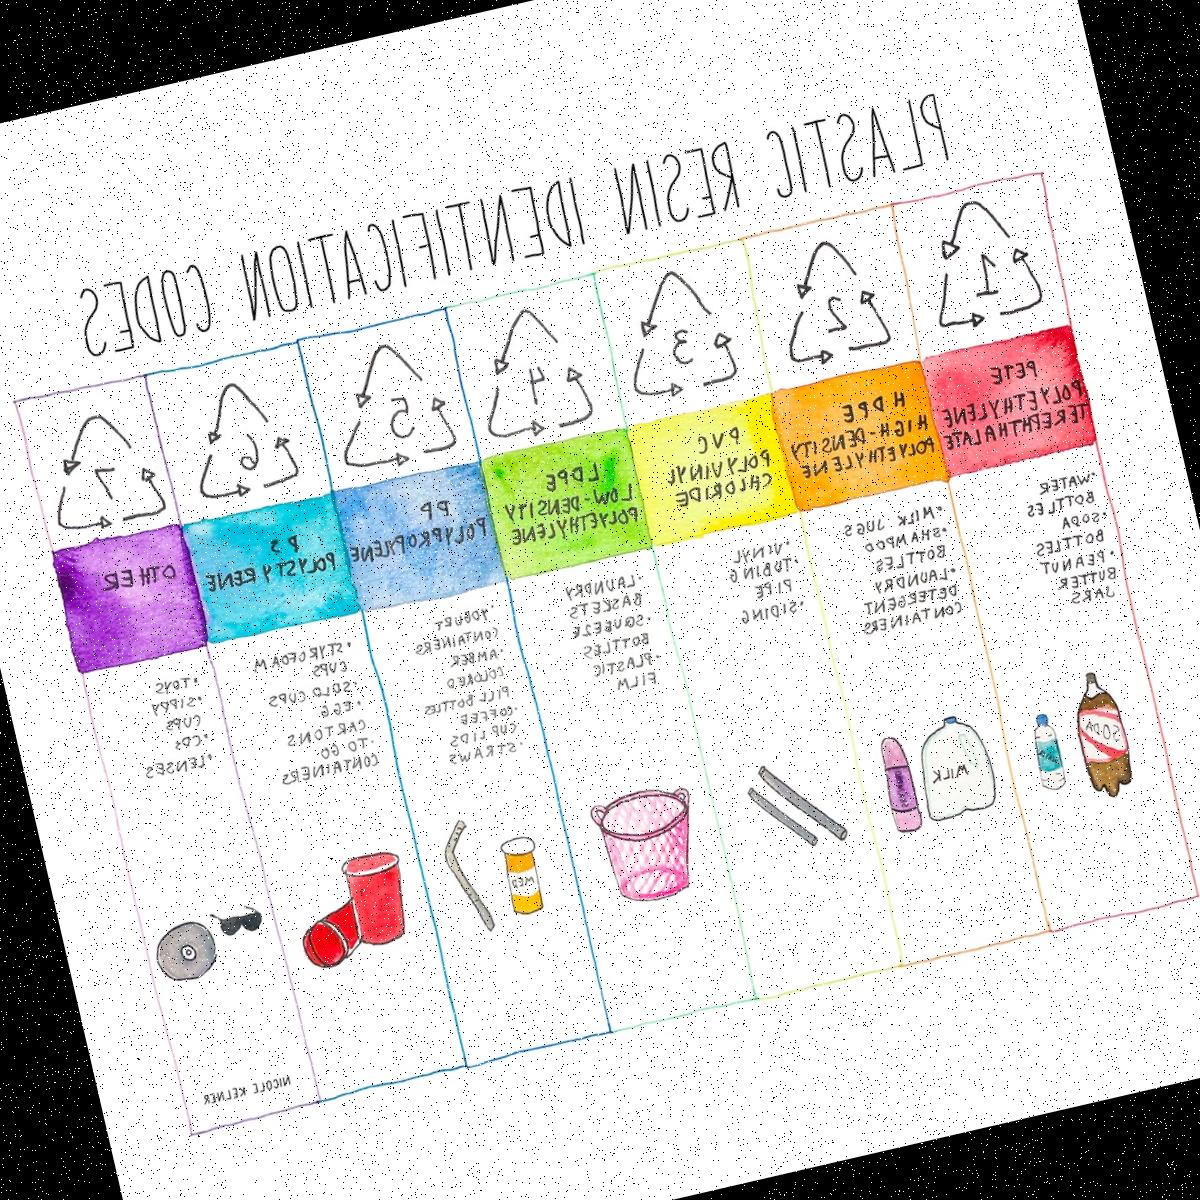 PLASTIC RESIN IDENTIFICATION CODES
1
PETE
POLYETHYLENE
TERETHTHALATE
•WATER
BOTTLES
•SODA
BOTTLES
•PEANUT
BUTTER
JARS
SODA
2
HDPE
HIGH-DENSITY
POLYETHYLENE
•MILK JUGS
•SHAMPOO
BOTTLES
•LAUNDRY
DETERGENT
CONTAINERS
MILK
3
PVC
POLYVINYL
CHLORIDE
•VINYL
•TUBING
PIPE
•SIDING
4
LDPE
LOW-DENSITY
POLYETHYLENE
•LAUNDRY
BASKETS
•SQUEEZE
BOTTLES
•PLASTIC
FILM
5
PP
POLYPROPYLENE
•YOGURT
CONTAINERS
•AMBER
COLORED
PILL BOTTLES
•COFFEE
CUP LIDS
•STRAWS
MED
6
PS
POLYSTYRENE
•STYROFOAM
CUPS
•SOLO CUPS
•EGG
CARTONS
•TO GO
CONTAINERS
7
OTHER
•TOYS
•SIPPY
CUPS
•CDs
•LENSES
NICOLE KELNER